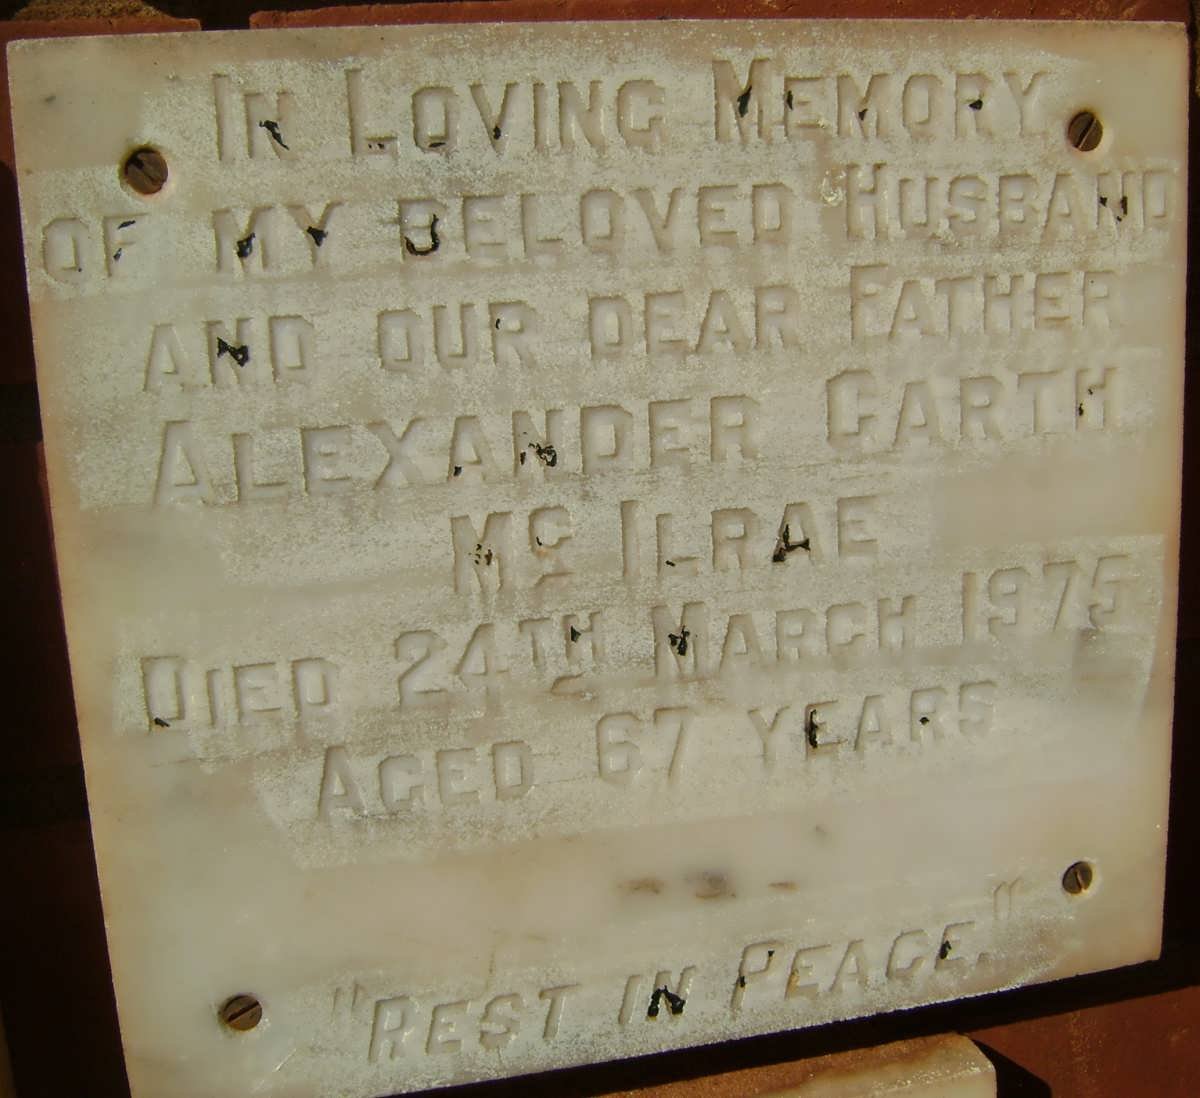 IN LOVING MEMORY
OF MY BELOVED HUSBAND
AND OUR DEAR FATHER
ALEXANDER GARTH
MC ILRAE
DIED 24TH MARCH 1975
AGED 67 YEARS
"REST IN PEACE."